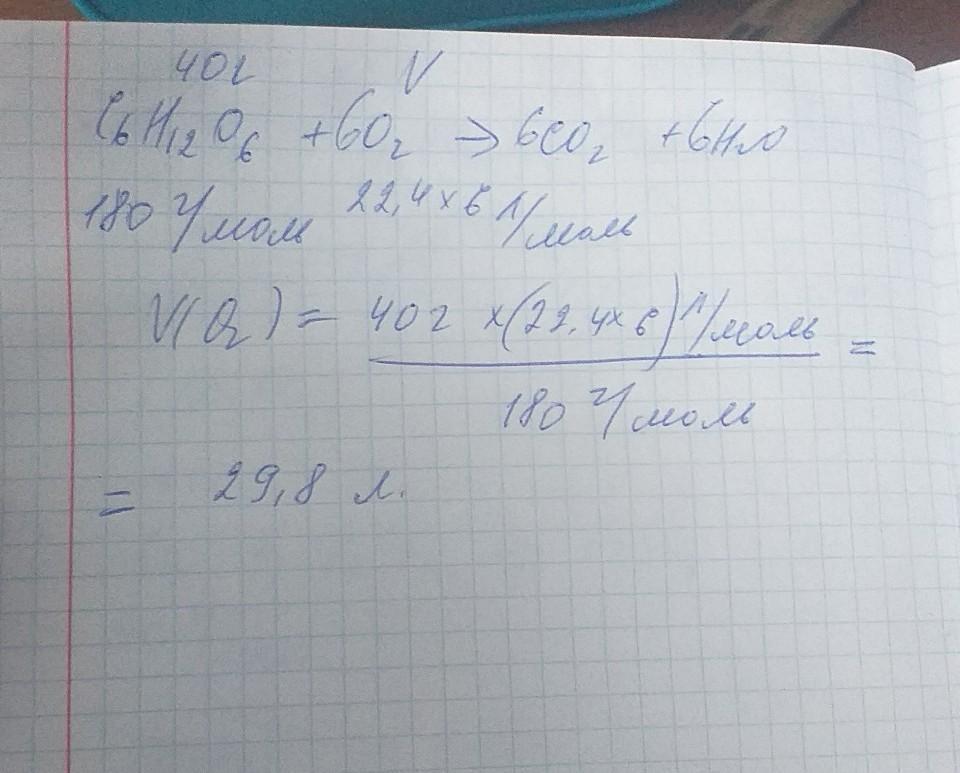 40г V
C₆H₁₂O₆ + 6O₂ → 6CO₂ + 6H₂O
180 г/моль 22,4 × 6 л/моль
V(O₂) = 40г × (22,4 × 6) л/моль =
180 г/моль
= 29,8 л.